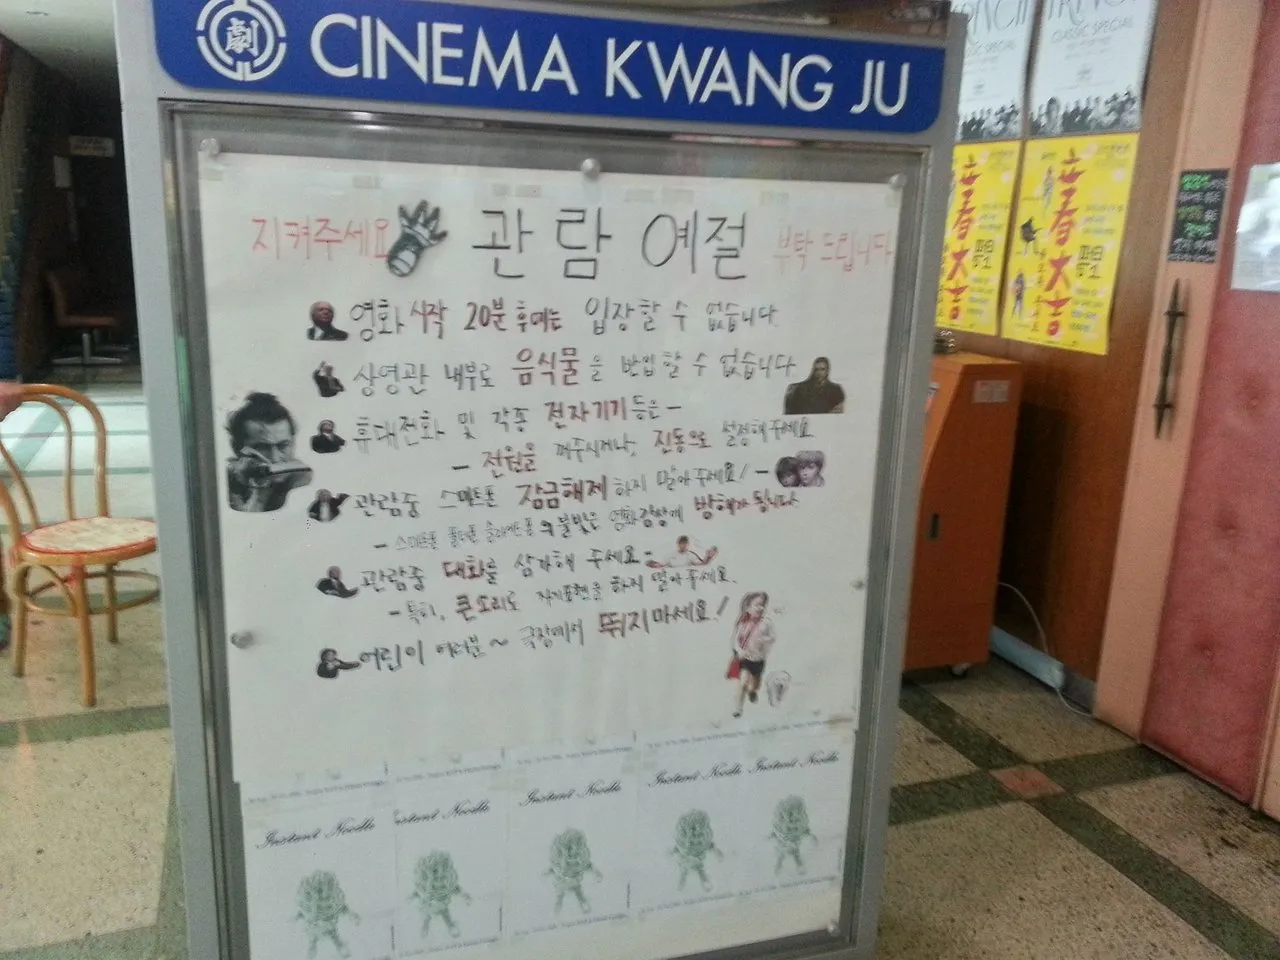 劇 CINEMA KWANG JU
지켜주세요 관람 예절 부탁 드립니다
영화 시작 20분 후에는 입장할 수 없습니다
상영관 내부로 음식물을 반입할 수 없습니다
휴대전화 및 각종 전자기기 등은 -
- 전원을 꺼주시거나, 진동으로 설정해주세요
관람중 스마트폰 잠금해제 하지 말아주세요! -
- 스마트폰 의 불빛은 영화감상에 방해가 됩니다
관람중 대화를 삼가해 주세요 -
- 특히, 큰소리로 자기표현을 하지 말아주세요.
어린이 여러분 ~ 극장에서 뛰지마세요!
Instant Noodle
Instant Noodle
Instant Noodle
Instant Noodle
Instant Noodle
CLASSIC SPECIAL
CLASSIC SPECIAL
春大吉
春大吉